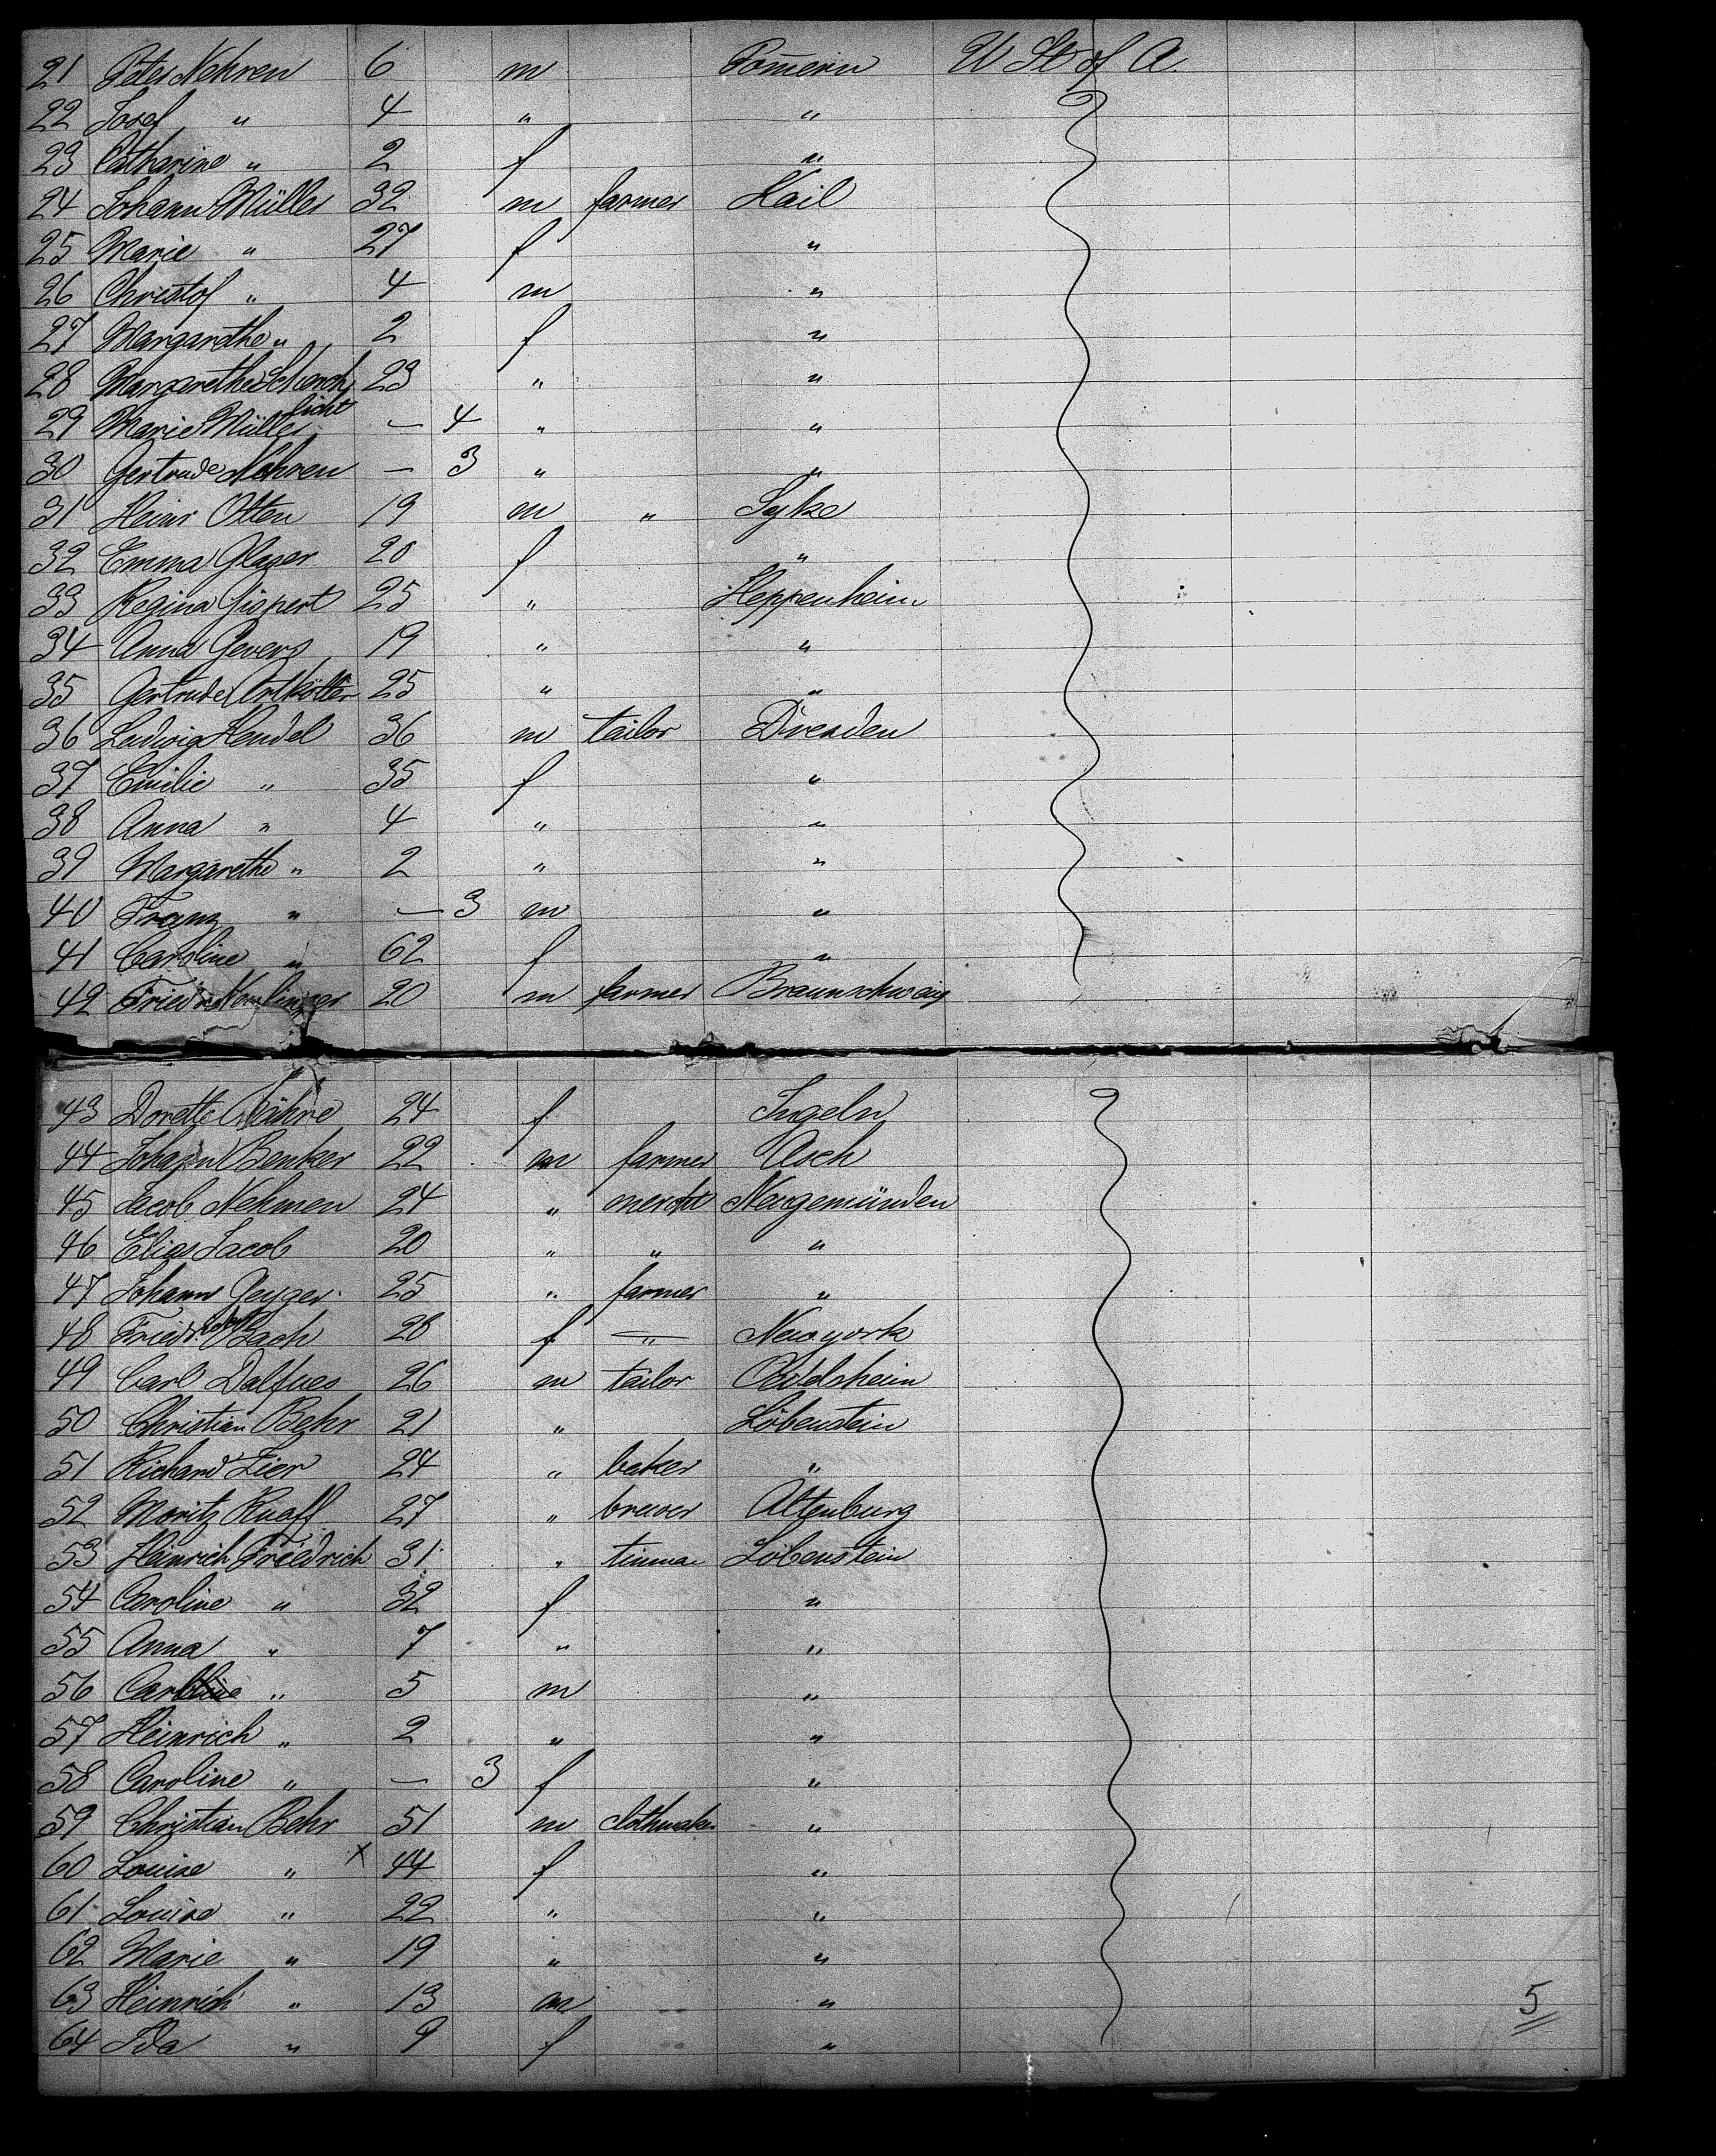 21 Peter Nehren 6 m Pomern U St of A.
22 Josef " 4 " "
23 Catharine " 2 f "
24 Johann Müller 32 m farmer Kail
25 Marie " 27 f "
26 Christof " 4 m "
27 Margarethe " 2 f "
28 Margarethe 23 " "
29 Marie Müller — 4 " "
30 Gertrude Nehren — 3 " "
31 Heinr Otten 19 m " Syke
32 Emma Glaser 20 f "
33 Regina Gispert 25 " Heppenheim
34 Anna Gevers 19 " "
35 Gertrude Ortkötter 25 " "
36 Ludwig Hendel 36 m tailor Dresden
37 Emilie " 35 f "
38 Anna " 4 " "
39 Margarethe " 2 " "
40 Franz " — 3 m "
41 Caroline " 62 f "
42 Friedr 20 m farmer Braunschweig
43 Dorette 24 f Ingeln
44 Johann Benker 22 m farmer Asch
45 Jacob Nehmen 24 " mercht Neugemünden
46 Elias Jacob 20 " " "
47 Johann Geyger 25 " farmer "
48 Friedr. Bach 28 f — " Newyork
49 Carl Dalfues 26 m tailor Oedelsheim
50 Christian Behr 21 " Löbenstein
51 Richard Zier 24 " baker "
52 Moritz Knaff 27 " brewer Altenburg
53 Heinrich Friedrich 31 " tinma Löbenstein
54 Caroline " 32 f "
55 Anna " 7 " "
56 Carl " 5 m "
57 Heinrich " 2 " "
58 Caroline " — 3 f "
59 Christian Behr 51 m clothmaker "
60 Louise " x 44 f "
61 Louise " 22 " "
62 Marie " 19 " "
63 Heinrich " 13 m "
64 Ida " 9 f "
5